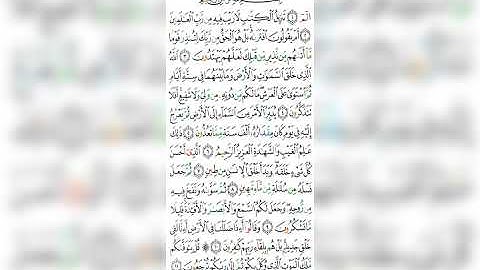 الٓمٓ ١ تَنزِيلُ ٱلْكِتَٰبِ لَا رَيْبَ فِيهِ مِن رَّبِّ ٱلْعَٰلَمِينَ
٢ أَمْ يَقُولُونَ ٱفْتَرَىٰهُ بَلْ هُوَ ٱلْحَقُّ مِن رَّبِّكَ لِتُنذِرَ قَوْمًا
مَّآ أَتَىٰهُم مِّن نَّذِيرٍ مِّن قَبْلِكَ لَعَلَّهُمْ يَهْتَدُونَ ٣ ٱللَّهُ
ٱلَّذِى خَلَقَ ٱلسَّمَٰوَٰتِ وَٱلْأَرْضَ وَمَا بَيْنَهُمَا فِى سِتَّةِ أَيَّامٍ
ثُمَّ ٱسْتَوَىٰ عَلَى ٱلْعَرْشِ مَا لَكُم مِّن دُونِهِۦ مِن وَلِىٍّ وَلَا شَفِيعٍ أَفَلَا
تَتَذَكَّرُونَ ٤ يُدَبِّرُ ٱلْأَمْرَ مِنَ ٱلسَّمَآءِ إِلَى ٱلْأَرْضِ ثُمَّ يَعْرُجُ
إِلَيْهِ فِى يَوْمٍ كَانَ مِقْدَارُهُۥٓ أَلْفَ سَنَةٍ مِّمَّا تَعُدُّونَ ٥ ذَٰلِكَ
عَٰلِمُ ٱلْغَيْبِ وَٱلشَّهَٰدَةِ ٱلْعَزِيزُ ٱلرَّحِيمُ ٦ ٱلَّذِىٓ أَحْسَنَ
كُلَّ شَىْءٍ خَلَقَهُۥ وَبَدَأَ خَلْقَ ٱلْإِنسَٰنِ مِن طِينٍ ٧ ثُمَّ جَعَلَ
نَسْلَهُۥ مِن سُلَٰلَةٍ مِّن مَّآءٍ مَّهِينٍ ٨ ثُمَّ سَوَّىٰهُ وَنَفَخَ فِيهِ
مِن رُّوحِهِۦ وَجَعَلَ لَكُمُ ٱلسَّمْعَ وَٱلْأَبْصَٰرَ وَٱلْأَفْـِٔدَةَ قَلِيلًا
مَّا تَشْكُرُونَ ٩ وَقَالُوٓا۟ أَءِذَا ضَلَلْنَا فِى ٱلْأَرْضِ أَءِنَّا لَفِى
خَلْقٍ جَدِيدٍۭ بَلْ هُم بِلِقَآءِ رَبِّهِمْ كَٰفِرُونَ ١٠ قُلْ يَتَوَفَّىٰكُم
مَّلَكُ ٱلْمَوْتِ ٱلَّذِى وُكِّلَ بِكُمْ ثُمَّ إِلَىٰ رَبِّكُمْ تُرْجَعُونَ ١١